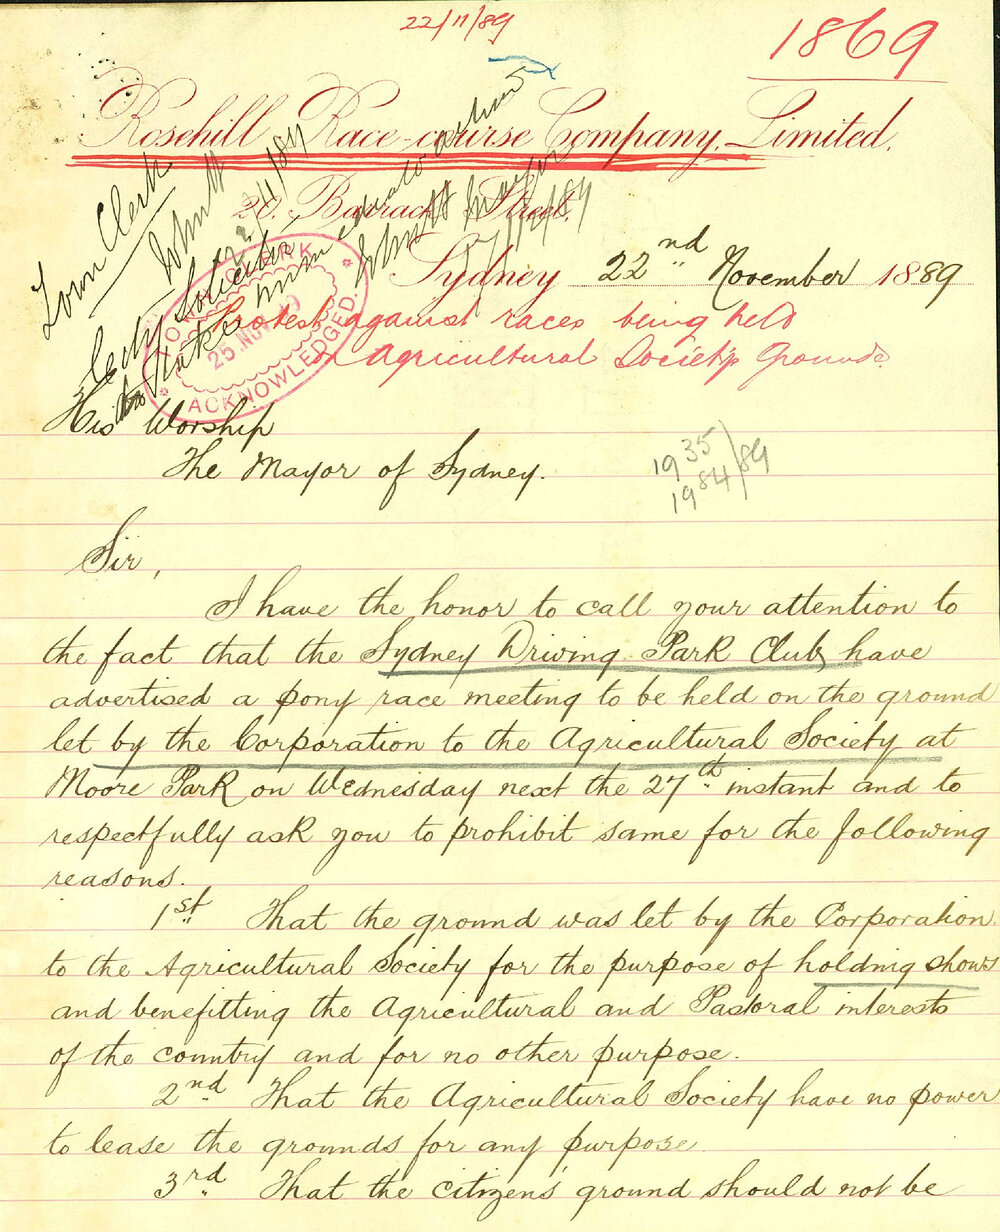 22/11/89
1869
Rosehill Race-course Company, Limited.
20. Barrack Street.
Sydney 22nd November 1889
Town Clerk
City Solicitor
TOWN CLERK
25 NOV
ACKNOWLEDGED.
Protest against races being held
on Agricultural Society's Grounds
His Worship
The Mayor of Sydney.
1935
1984/89
Sir,
I have the honor to call your attention to
the fact that the Sydney Driving Park Club, have
advertised a pony race meeting to be held on the ground
let by the Corporation to the Agricultural Society at
Moore Park on Wednesday next the 27th instant and to
respectfully ask you to prohibit same for the following
reasons.
1st That the ground was let by the Corporation
to the Agricultural Society for the purpose of holding shows
and benefitting the Agricultural and Pastoral interests
of the country and for no other purpose.
2nd That the Agricultural Society have no power
to lease the grounds for any purpose
3rd That the citizens ground should not be